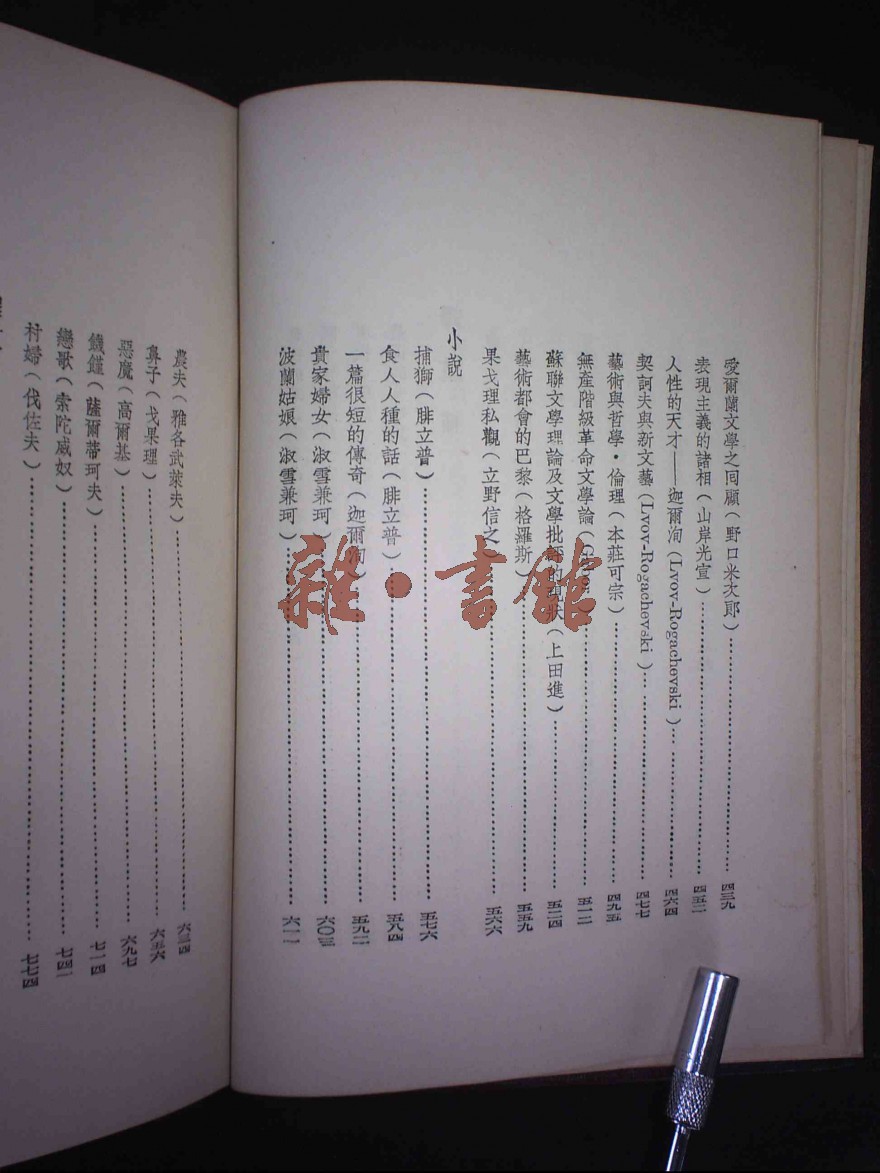 愛爾蘭文學之囘顧(野口米次郎)四三九
表現主義的諸相(山岸光宣)四五二
人性的天才——迦爾洵(Lvov-Rogachevski)四六四
契訶夫與新文藝(Lvov-Rogachevski)四七七
藝術與哲學・倫理(本莊可宗)四九五
無產階級革命文學論(五一二
蘇聯文學理論及文學批評的現狀(上田進)五二四
藝術都會的巴黎(格羅斯)五五九
果戈理私觀(立野信之)五六六
小說
捕獅(腓立普)五七六
食人人種的話(腓立普)五八四
一篇很短的傳奇(迦爾洵)五九二
貴家婦女(淑雪兼珂)六〇三
波蘭姑娘(淑雪兼珂)六一一
農夫(雅各武萊夫)六三四
鼻子(戈果理)六五六
惡魔(高爾基)六九七
饑饉(薩爾蒂珂夫)七一四
戀歌(索陀威奴)七四二
村婦(伐佐夫)七七四
雜・書館